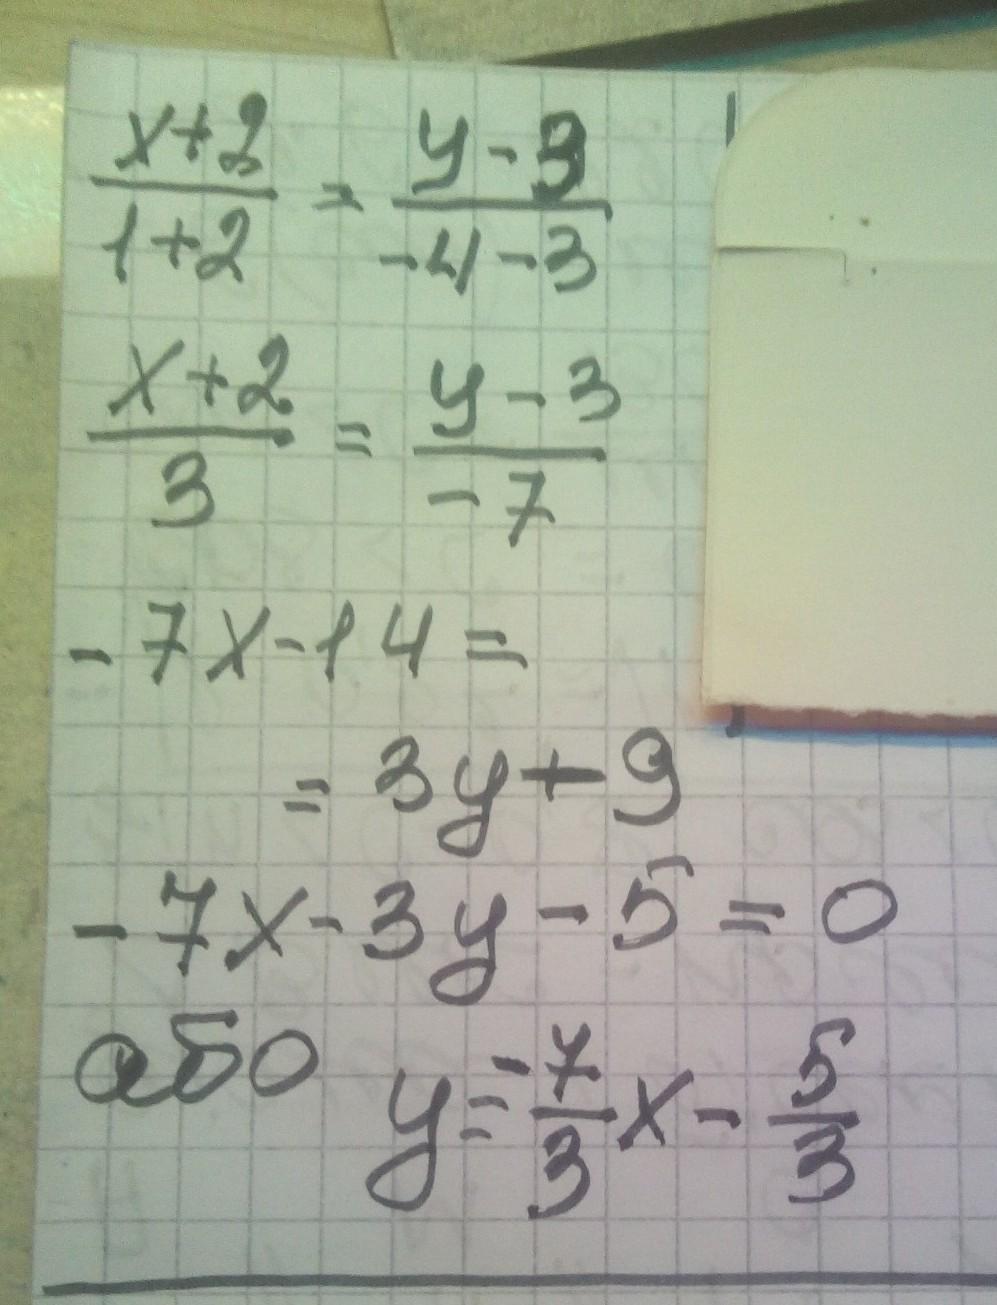 x+2/1+2 = y-3/-4-3
x+2/3 = y-3/-7
-7x-14=
=3y+9
-7x-3y-5=0
або y=-7/3x-5/3